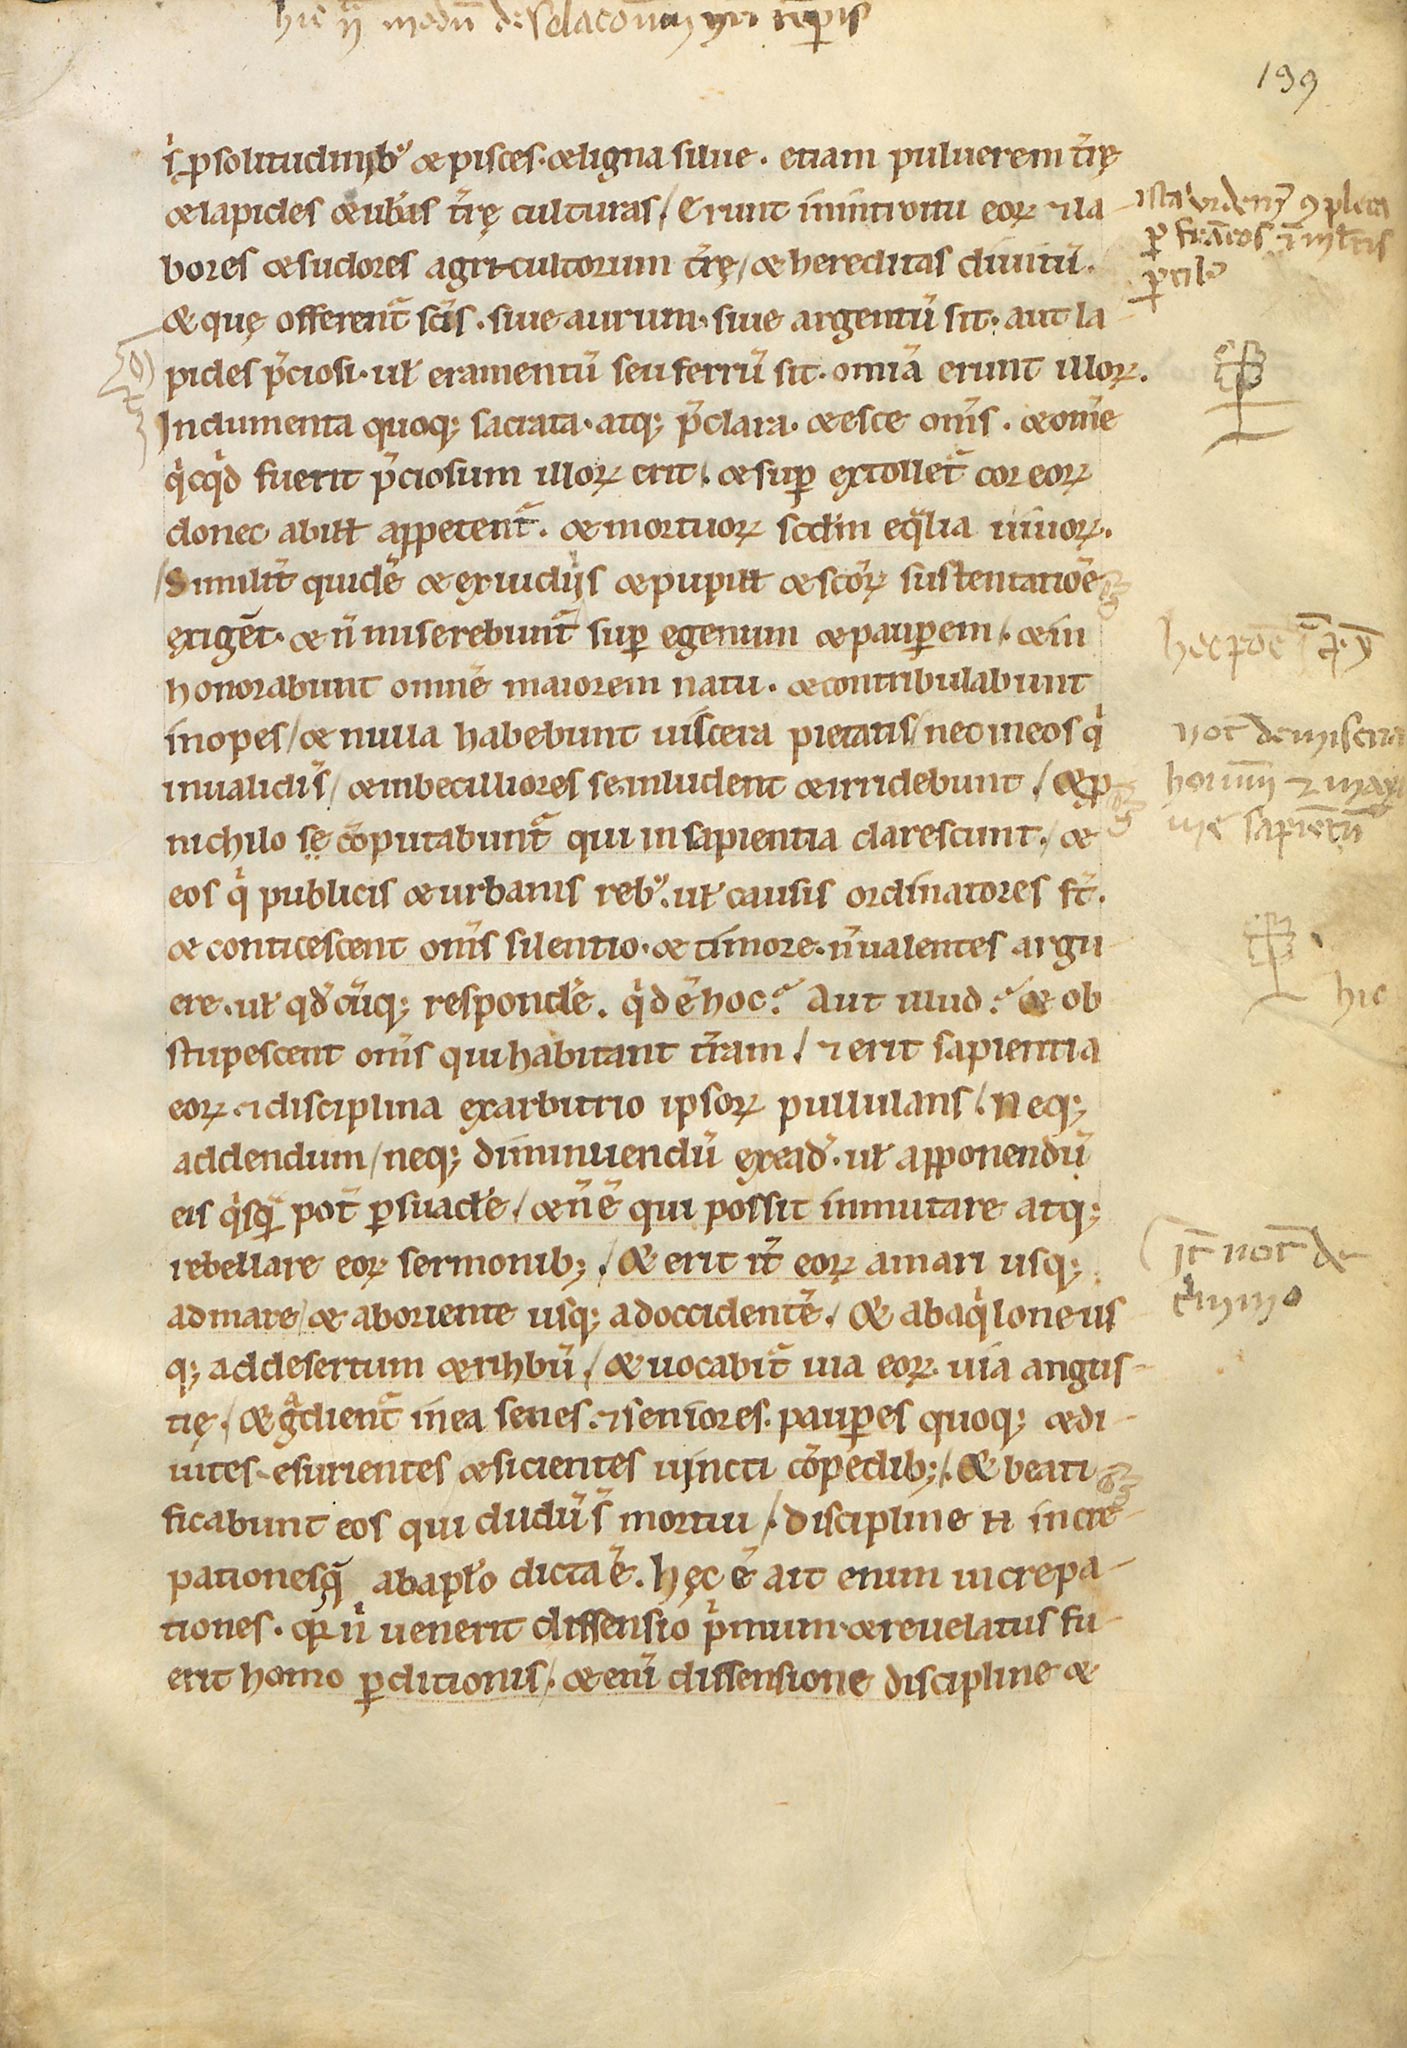 hic
199
s; ꝑsolitudinibꝰ & pisces · & ligna silue · etiam puluerem t̄rę
& lapides & ub̄as t̄rę culturas / Erunt in introitu eoꝝ ⁊ la
bores & sudores agricultorum t̄rę / & hereditas diuitū ·
& quę offerent̄ sc̄is · siue aurum · siue argentū sit · aut la
pides p̄ciosi · uł eramentū seu ferrū sit · om̄ia erunt illoꝝ ·
Indumenta quoq; sacrata · atq; p̄clara · & esce om̄s · & om̄e
qͥcqͥd fuerit p̄ciosum illoꝝ erit / · & suꝑ extollet̄ cor eoꝝ
donec abiłł appetent̄ · & mortuoꝝ scd̄m eqͣlia uiuoꝝ ·
Similit̄ quidē & exuiduis & pupiłł & sc̄oꝝ sustentationē
exigēt · & n̄ miserebunt̄ suꝑ egenum & pauꝑem / · & in
honorabunt omnē maiorem natu · & contribulabunt
inopes / & nulla habebunt uiscera pietatis / nec in eos qͥ
inualidi s̄ / & inbecilliores se · inludent & irridebunt / & ꝑ
nichilo se cōputabunt̄ qui in sapientia clarescunt · / &
eos qͥ publicis & urbanis rebꝰ · uł causis ordinatores s̄t ·
& conticescent om̄s silentio · & timore · n̄ ualentes argu
ere · uł qd̄ cūq; respondere · qͥd ē hoc ? Aut illud ? & ob
stupescent om̄s qui habitant t̄ram / ⁊ erit sapientia
eoꝝ ⁊ disciplina ex arbitrio ipsoꝝ pullulans / · Neq;
addendum / neq; diminuendū ex ead̄ · uł apponendū
eis qͥsqͣ pot̄ ꝑsuadere / & n̄ ē qui possit inmutare atq;
rebellare eoꝝ sermonib; / & erit it̄ eoꝝ a mari usq;
ad mare / & ab oriente usq; ad occidentē / & ab aqͥlone us
q; ad desertum & rihbū / & uocabit̄ uia eoꝝ · uia angus-
tię / & gͣdient̄ in ea senes · ⁊ seniores · pauꝑes quoq; & di-
uites · esurientes & sicientes uincti cōpedib; / · & beati
ficabunt eos qui dudū s̄ mortui / · discipline
pationes qͣ ab apło dicta ē · Hęc ē ait enim increpa-
tiones · qꝛ n̄ uenerit dissensio pͥmum · & reuelatus fu-
erit homo ꝑditionis / · & enī dissensione discipline &
ista uident̄ ꝯpleta
not̄
hic
It̄ not̄ de